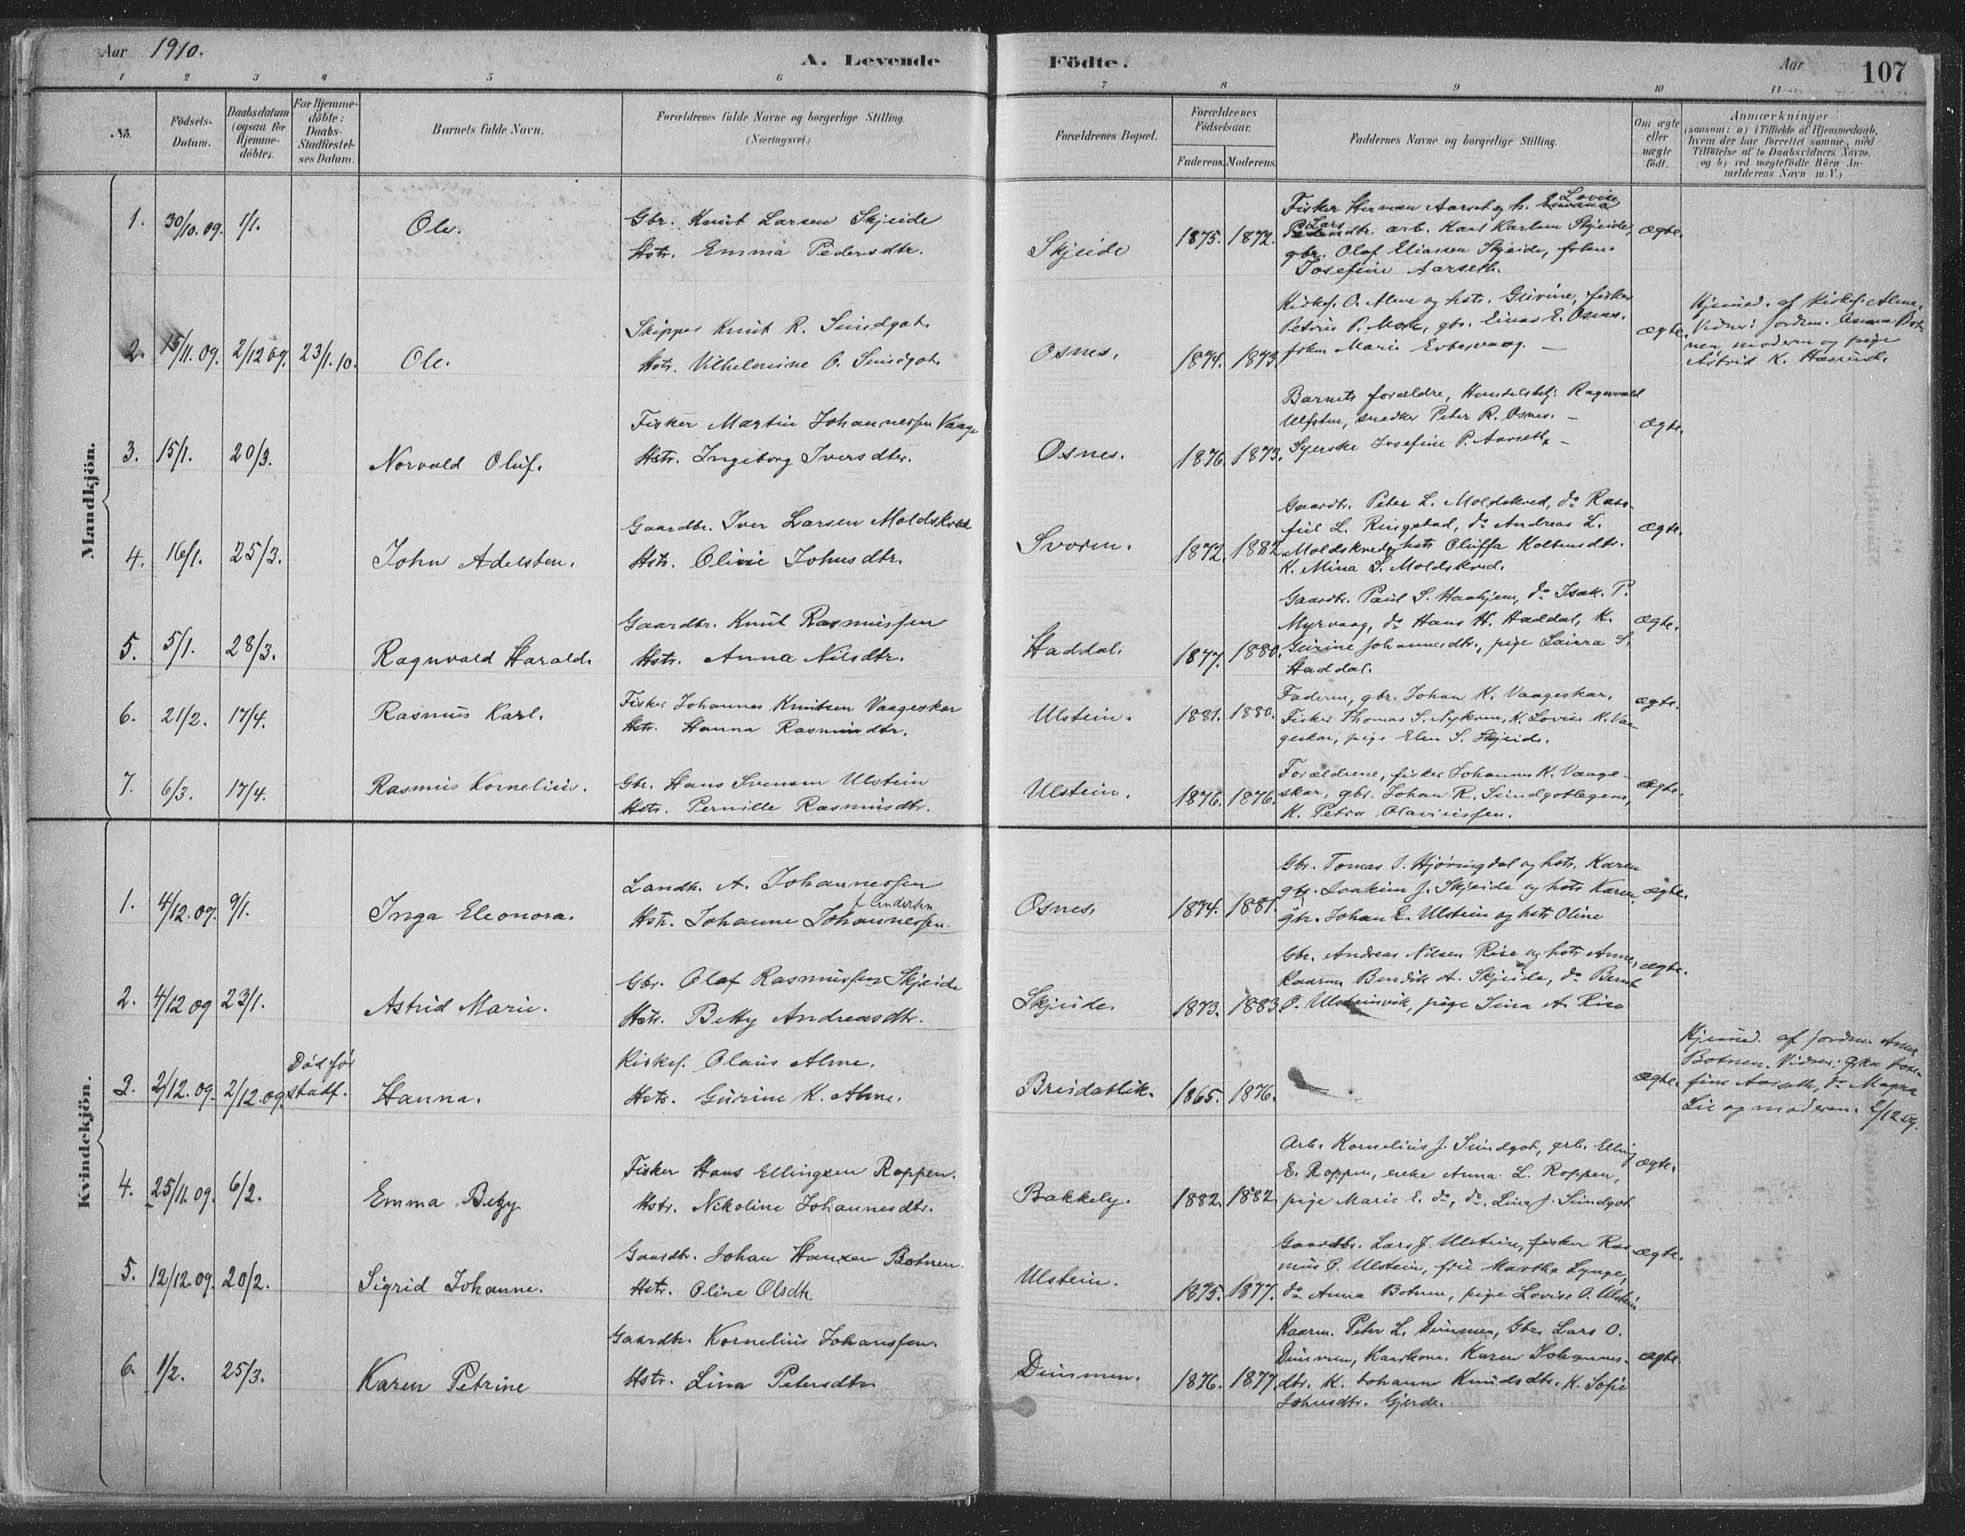 Aar 1910.
A. Levende
Födte.
Aar
107
1 2 3 4 5 6 7 8 9 10 11
No.
Födsels-
Datum.
Daabsdatum
(ogsaa for
Hjemme-
döbte).
For Hjemme-
döbte:
Daabs-
Stadfæstel-
ses Datum.
Barnets fulde Navn.
Forældrenes fulde Navne og borgerlige Stilling.
(Næringsvei)
Forældrenes Bopæl.
Forældrenes
Födselsaar.
Faderens. Moderens.
Faddernes Navne og borgerlige Stilling.
Om ægte
eller
uægte
födt.
Anmærkninger
(saasom: a) i Tilfælde af Hjemmedaab,
hvem der har forrettet samme, med
Tilföielse af to Daabsvidners Navne,
og b) ved uegtefödte Börn An-
melderens Navn m. V.)
Mandkjön.
1. 30/10.09. 1/1. Ole.
Gbr. Knut Larsen Skjeide
Hstr. Emma Pedersdtr.
Skjeide 1875. 1872.
Fisker Herman Aarset og h. Lovise
Larsdtr. arb. Karl Karlsen Skjeide,
gbr. Olaf Eliassen Skjeide, frkn.
Josefine Aarseth.
ægte.
2. 15/11.09. 2/12 09. 23/1.10. Ole.
Skipper Knut R. Sundgot.
Hstr. Vilhelmine O. Sundgot.
Osnes. 1874. 1873.
Kirkes. O. Alme og hstr. Gurine, fisker
Petris P. Mork, gbr. Einar E. Osnes.
frkn Marie
ægte.
Hjemmed. af kirkes. Alme.
Vidner: Jordm. Anna Bot-
nen, moderen og pige
Astrid K. Hasund.
3. 15/1. 20/3. Norvald Oluf.
Fisker Martin Johannessen Vaage
Hstr. Ingeborg Iversdtr.
Osnes. 1876. 1873.
Barnets forældre, Handelsbetj. Ragnvald
Ulfsten, snedker Peter R. Osnes. –
Syerske Josefine P. Aarseth. –
ægte.
4. 16/1. 25/3. John Adelsten.
Gaardbr. Iver Larsen Moldskred
Hstr. Olivie Johnsdtr.
Svoren. 1872. 1882
Gaardbr. Peter L. Moldskred, do Ras-
L. Ringstad, do Andreas L.
Moldskred, hstr Oluffa Kolbensdtr.
K. Mina S. Moldskred.
ægte.
5. 5/1. 28/3. Ragnvald Harald.
Gaardbr. Knut Rasmussen
Hstr. Anna Nilsdtr.
Haddal. 1877. 1880.
Gaardbr. Paul S. Haahjem, do Isak P.
Myrvaag, do Hans H. Haddal, K.
Gurine Johannesdtr., pige Laura S.
Haddal.
ægte.
6. 21/2. 17/4. Rasmus Karl.
Fisker Johannes Knutsen Vaageskar
Hstr. Hanna Rasmusdtr.
Ulstein. 1881. 1880.
Faderen, gbr. Johan K. Vaageskar.
Fisker Thomas S. Nykren, K. Lovise K. Vaa-
geskar, pige Elen S. Skjeide.
ægte.
7. 6/3. 17/4. Rasmus Kornelius.
Gbr. Hans Svensen Ulstein
Hstr. Pernille Rasmusdtr.
Ulstein. 1876. 1876.
Forældrene, fisker Johannes K. Vaage-
skar, gbr. Johan R. Sundgotlegene,
K. Petra Olaviussen.
ægte.
Kvindekjön.
1. 4/12.09. 9/1. Inga Eleonora.
Landh. A. Johannessen
f. Andersen
Hstr. Johanne Johannessen.
Osnes 1874. 1881.
Gbr. Tomas I. Hjørungdal og hstr. Karen
gbr. Joakim J. Skjeide og hstr Karen,
gbr. Johan E. Ulstein og hstr Oline
ægte.
2. 4/12 09 23/1. Astrid Marie.
Gbr. Olaf Rasmussen Skjeide
Hstr. Betty Andreasdtr.
Skjeide. 1873. 1883
Gbr. Andreas Nilsen Rise og hstr Anne,
Kaarm Bendik A. Skjeide, do Bernt
P. Ulsteinvik, pige Sina A. Rise
ægte.
3. 2/12.09. 2/12.09. Død før
stadf. Hanna.
Kirkes. Olaus Alme.
Hstr. Gurine K. Alme.
Breidablik. 1865. 1876.
ægte.
Hjemmed. af Jordm. Anna
Botnen. Vidner: Frkn Jose-
fine Aarseth, do Magna
Lie og moderen. 2/12 09.
4. 25/11.09. 6/2. Emma Betzy
Fisker Hans Ellingsen Roppen.
Hstr. Nikoline Johannesdtr.
Bakkely. 1882. 1882
Arb. Kornelius J. Sundgot, arb. Elling
E. Roppen, enke Anna L. Roppen,
pige Marie E. do, do, Lina J. Sundgot
ægte.
5. 12/12.09. 20/2. Sigrid Johanne.
Gaardbr. Johan Hansen Botnen.
Hstr. Oline Olsdtr
Ulstein. 1875. 1877.
Gaardbr. Lars J. Ulstein, fisker Ras-
mus P. Ulstein, fru Martha Lynge,
do Anna Botnen, pige Lovise O. Ulstein
ægte.
6. 1/2. 25/3. Karen Petrine
Gaardbr. Kornelius Johanssen.
Hstr. Lina Petersdtr
Dimmen. 1876. 1877
Kaarm. Peter L. Dimmen, Gbr. Lars O.
Dimmen, Kaarkone Karen Johannes-
dtr. K. Johanne Knudsdtr. K. Sofie
Johnsdtr. Gjerde.
ægte.